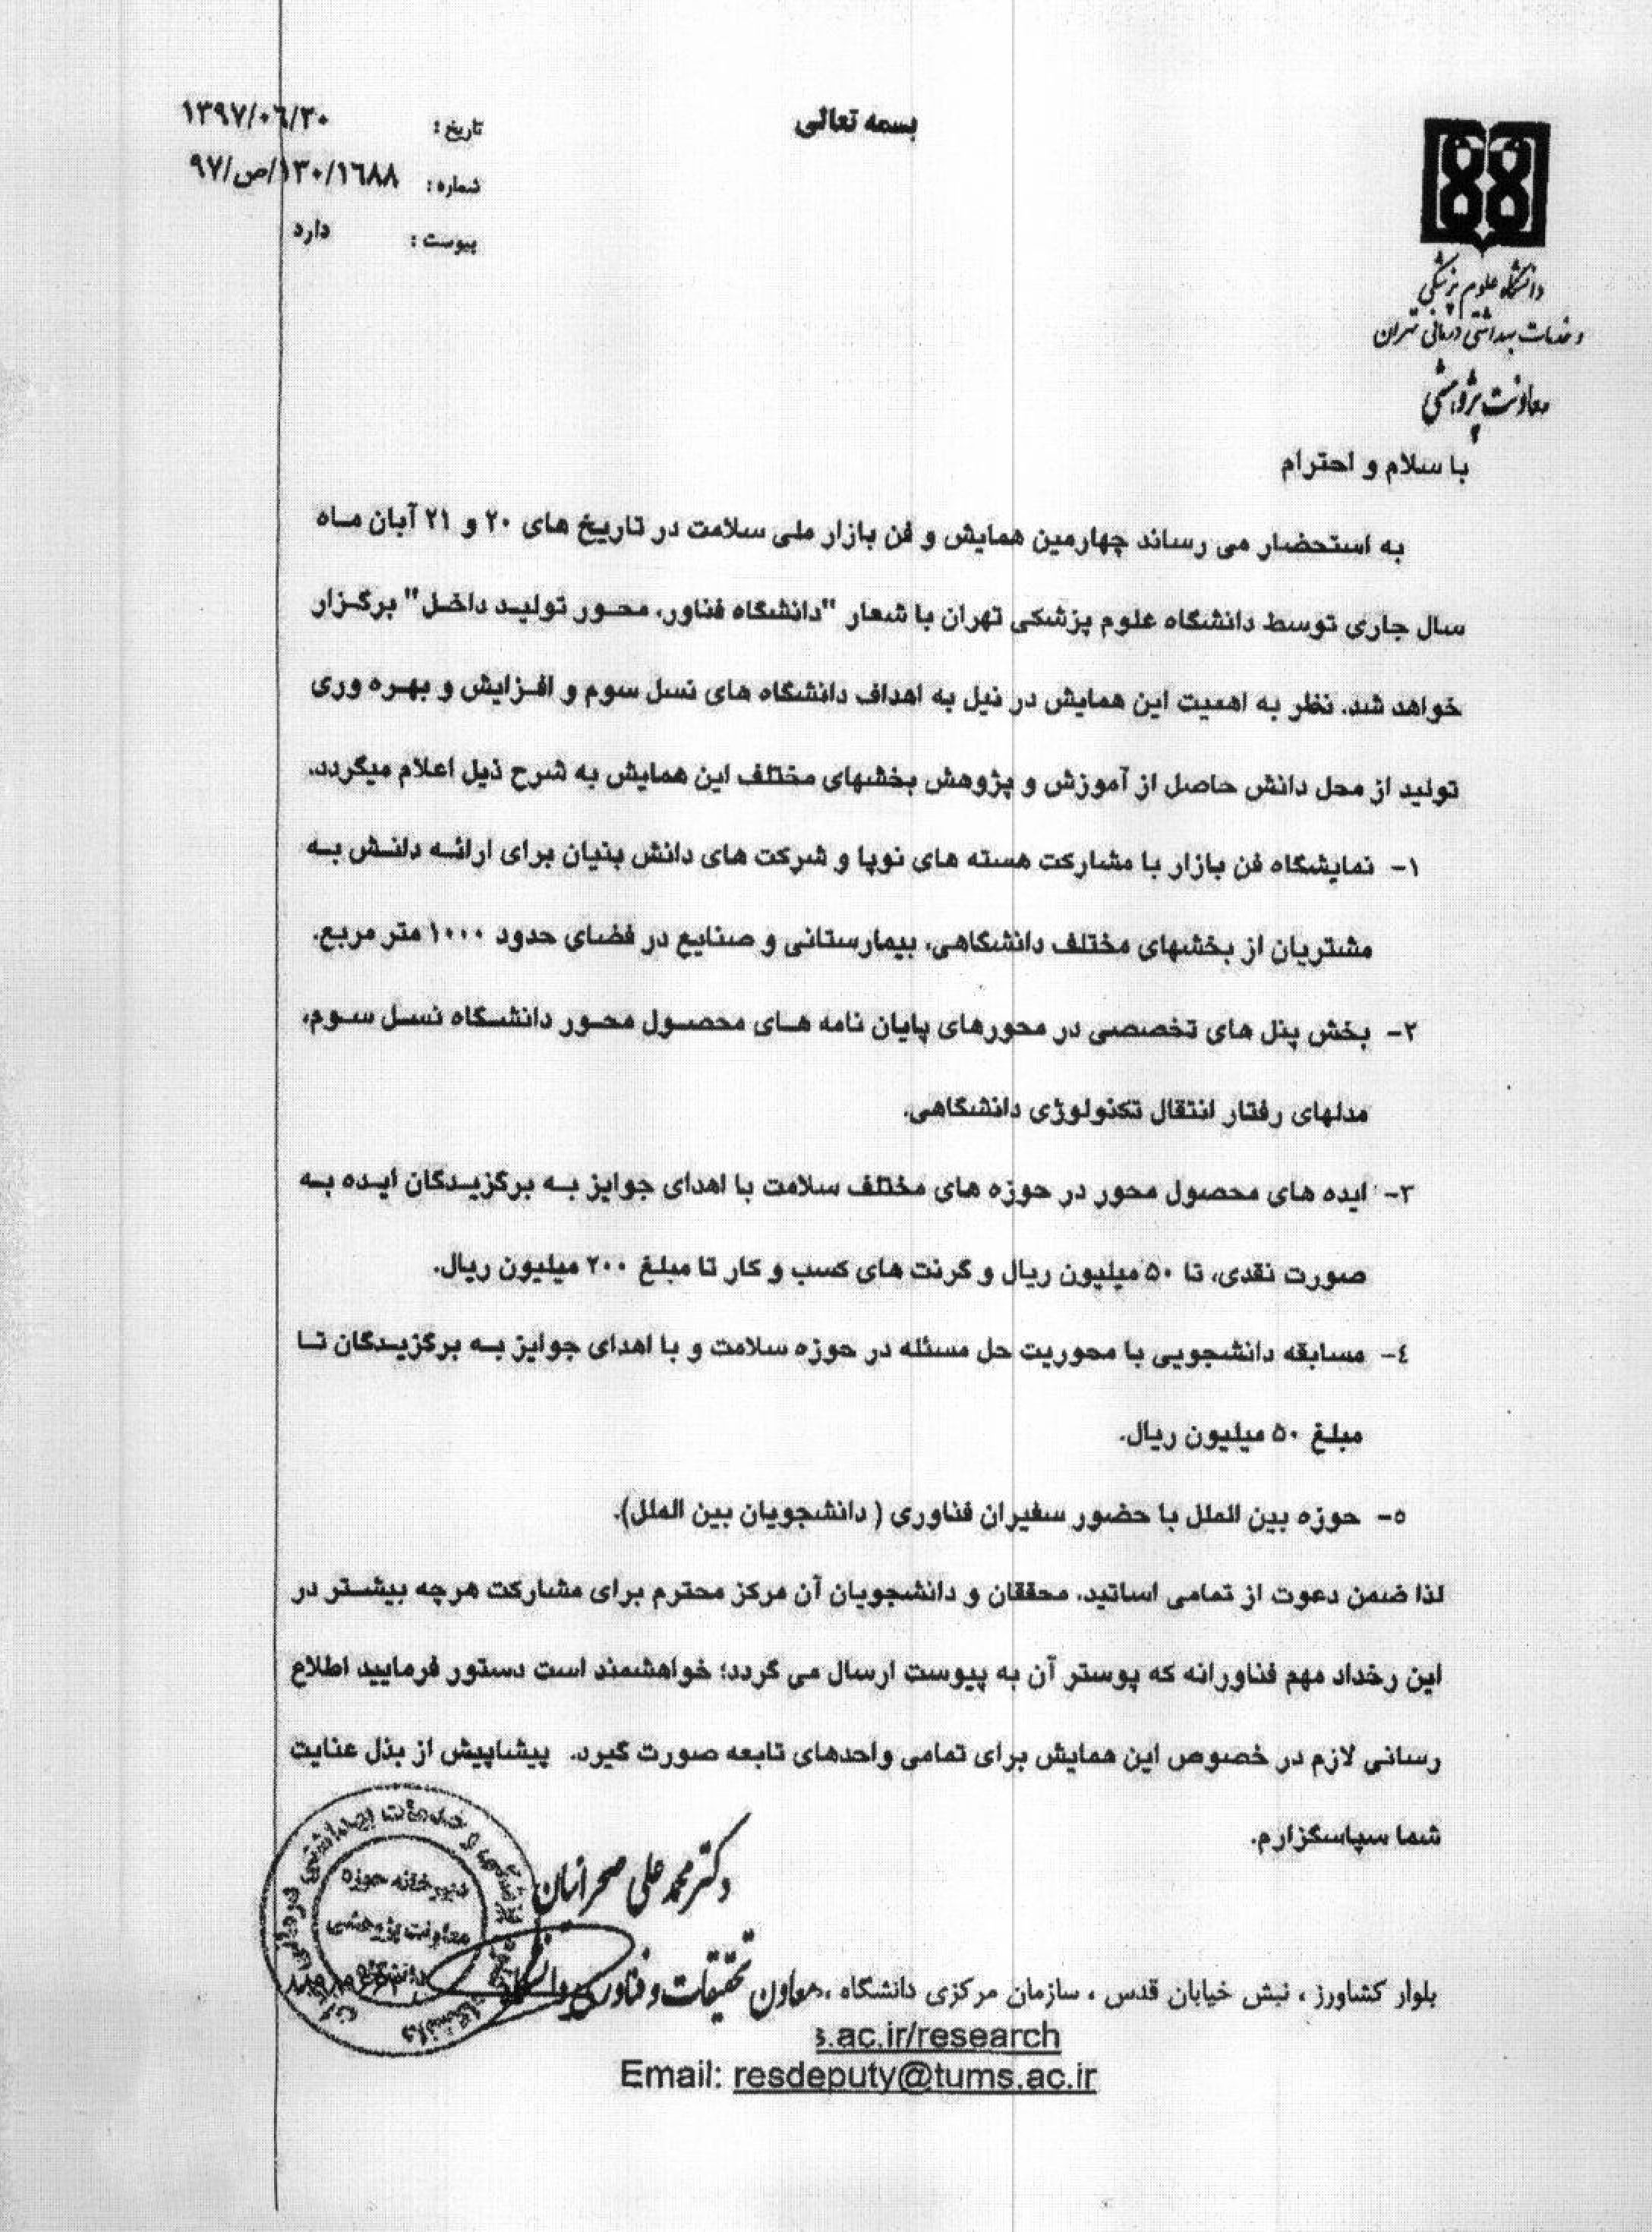 بسمه تعالی
تاریخ : ۱۳۹۷/۰۶/۳۰
شماره : ۱۳۰/۱۶۸۸/ص/۹۷
پیوست : دارد
دانشگاه علوم پزشکی
و خدمات بهداشتی درمانی تهران
معاونت پژوهشی
با سلام و احترام
به استحضار می رساند چهارمین همایش و فن بازار ملی سلامت در تاریخ های ۲۰ و ۲۱ آبان ماه
سال جاری توسط دانشگاه علوم پزشکی تهران با شعار "دانشگاه فناور، محور تولید داخل" برگزار
خواهد شد. نظر به اهمیت این همایش در نیل به اهداف دانشگاه های نسل سوم و افزایش و بهره وری
تولید از محل دانش حاصل از آموزش و پژوهش بخشهای مختلف این همایش به شرح ذیل اعلام میگردد.
۱- نمایشگاه فن بازار با مشارکت هسته های نوپا و شرکت های دانش بنیان برای ارائه دانش به
مشتریان از بخشهای مختلف دانشگاهی، بیمارستانی و صنایع در فضای حدود ۱۰۰۰ متر مربع.
۲- بخش پنل های تخصصی در محورهای پایان نامه های محصول محور دانشگاه نسل سوم،
مدلهای رفتار انتقال تکنولوژی دانشگاهی.
۳- ایده های محصول محور در حوزه های مختلف سلامت با اهدای جوایز به برگزیدگان ایده به
صورت نقدی، تا ۵۰ میلیون ریال و گرنت های کسب و کار تا مبلغ ۲۰۰ میلیون ریال.
۴- مسابقه دانشجویی با محوریت حل مسئله در حوزه سلامت و با اهدای جوایز به برگزیدگان تا
مبلغ ۵۰ میلیون ریال.
۵- حوزه بین الملل با حضور سفیران فناوری ( دانشجویان بین الملل).
لذا ضمن دعوت از تمامی اساتید، محققان و دانشجویان آن مرکز محترم برای مشارکت هرچه بیشتر در
این رخداد مهم فناورانه که پوستر آن به پیوست ارسال می گردد؛ خواهشمند است دستور فرمایید اطلاع
رسانی لازم در خصوص این همایش برای تمامی واحدهای تابعه صورت گیرد. پیشاپیش از بذل عنایت
شما سپاسگزارم.
دکتر محمد علی صحرائیان
معاون تحقیقات و فناوری دانشگاه
دبیرخانه حوزه
معاونت پژوهشی
بلوار کشاورز ، نبش خیابان قدس ، سازمان مرکزی دانشگاه ،
s.ac.ir/research
Email: resdeputy@tums.ac.ir